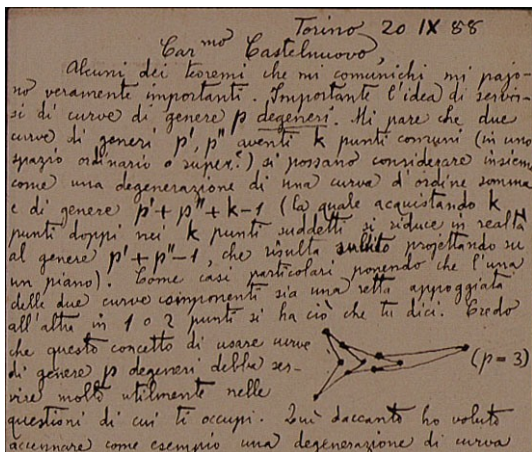 Torino 20 IX 88
Car.mo Castelnuovo,
Alcuni dei teoremi che mi comunichi mi pajo-
no veramente importanti. Importante l'idea di servir-
si di curve di genere p degeneri. Mi pare che due
curve di generi p', p'' aventi k punti comuni (in uno
spazio ordinario o super.e) si possano considerare insieme
come una degenerazione di una curva d'ordine somma
e di genere p'+p''+k-1 (la quale acquistando k
punti doppi nei k punti suddetti si riduce in realtà
al genere p'+p''-1, che risulta subito projettando su
un piano). Come casi particolari ponendo che l'una
delle due curve componenti sia una retta appoggiata
all'altra in 1 o 2 punti si ha ciò che tu dici. Credo
che questo concetto di usare curve
di genere p degeneri debba ser-
vire molto utilmente nelle
(p=3)
questioni di cui ti occupi. Quì daccanto ho voluto
accennare come esempio una degenerazione di curva